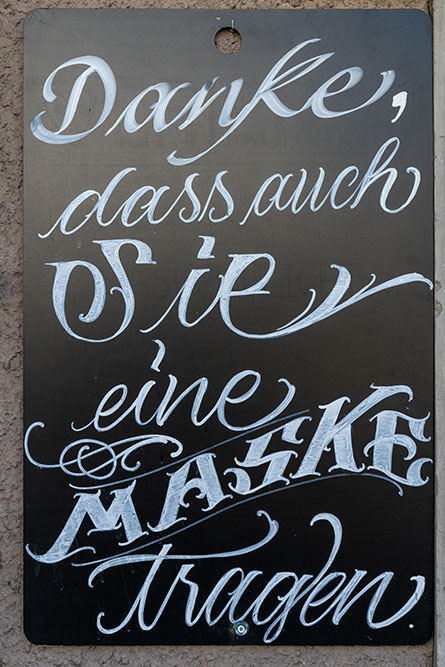 Danke,
dass auch
Sie
eine
MASKE
tragen.